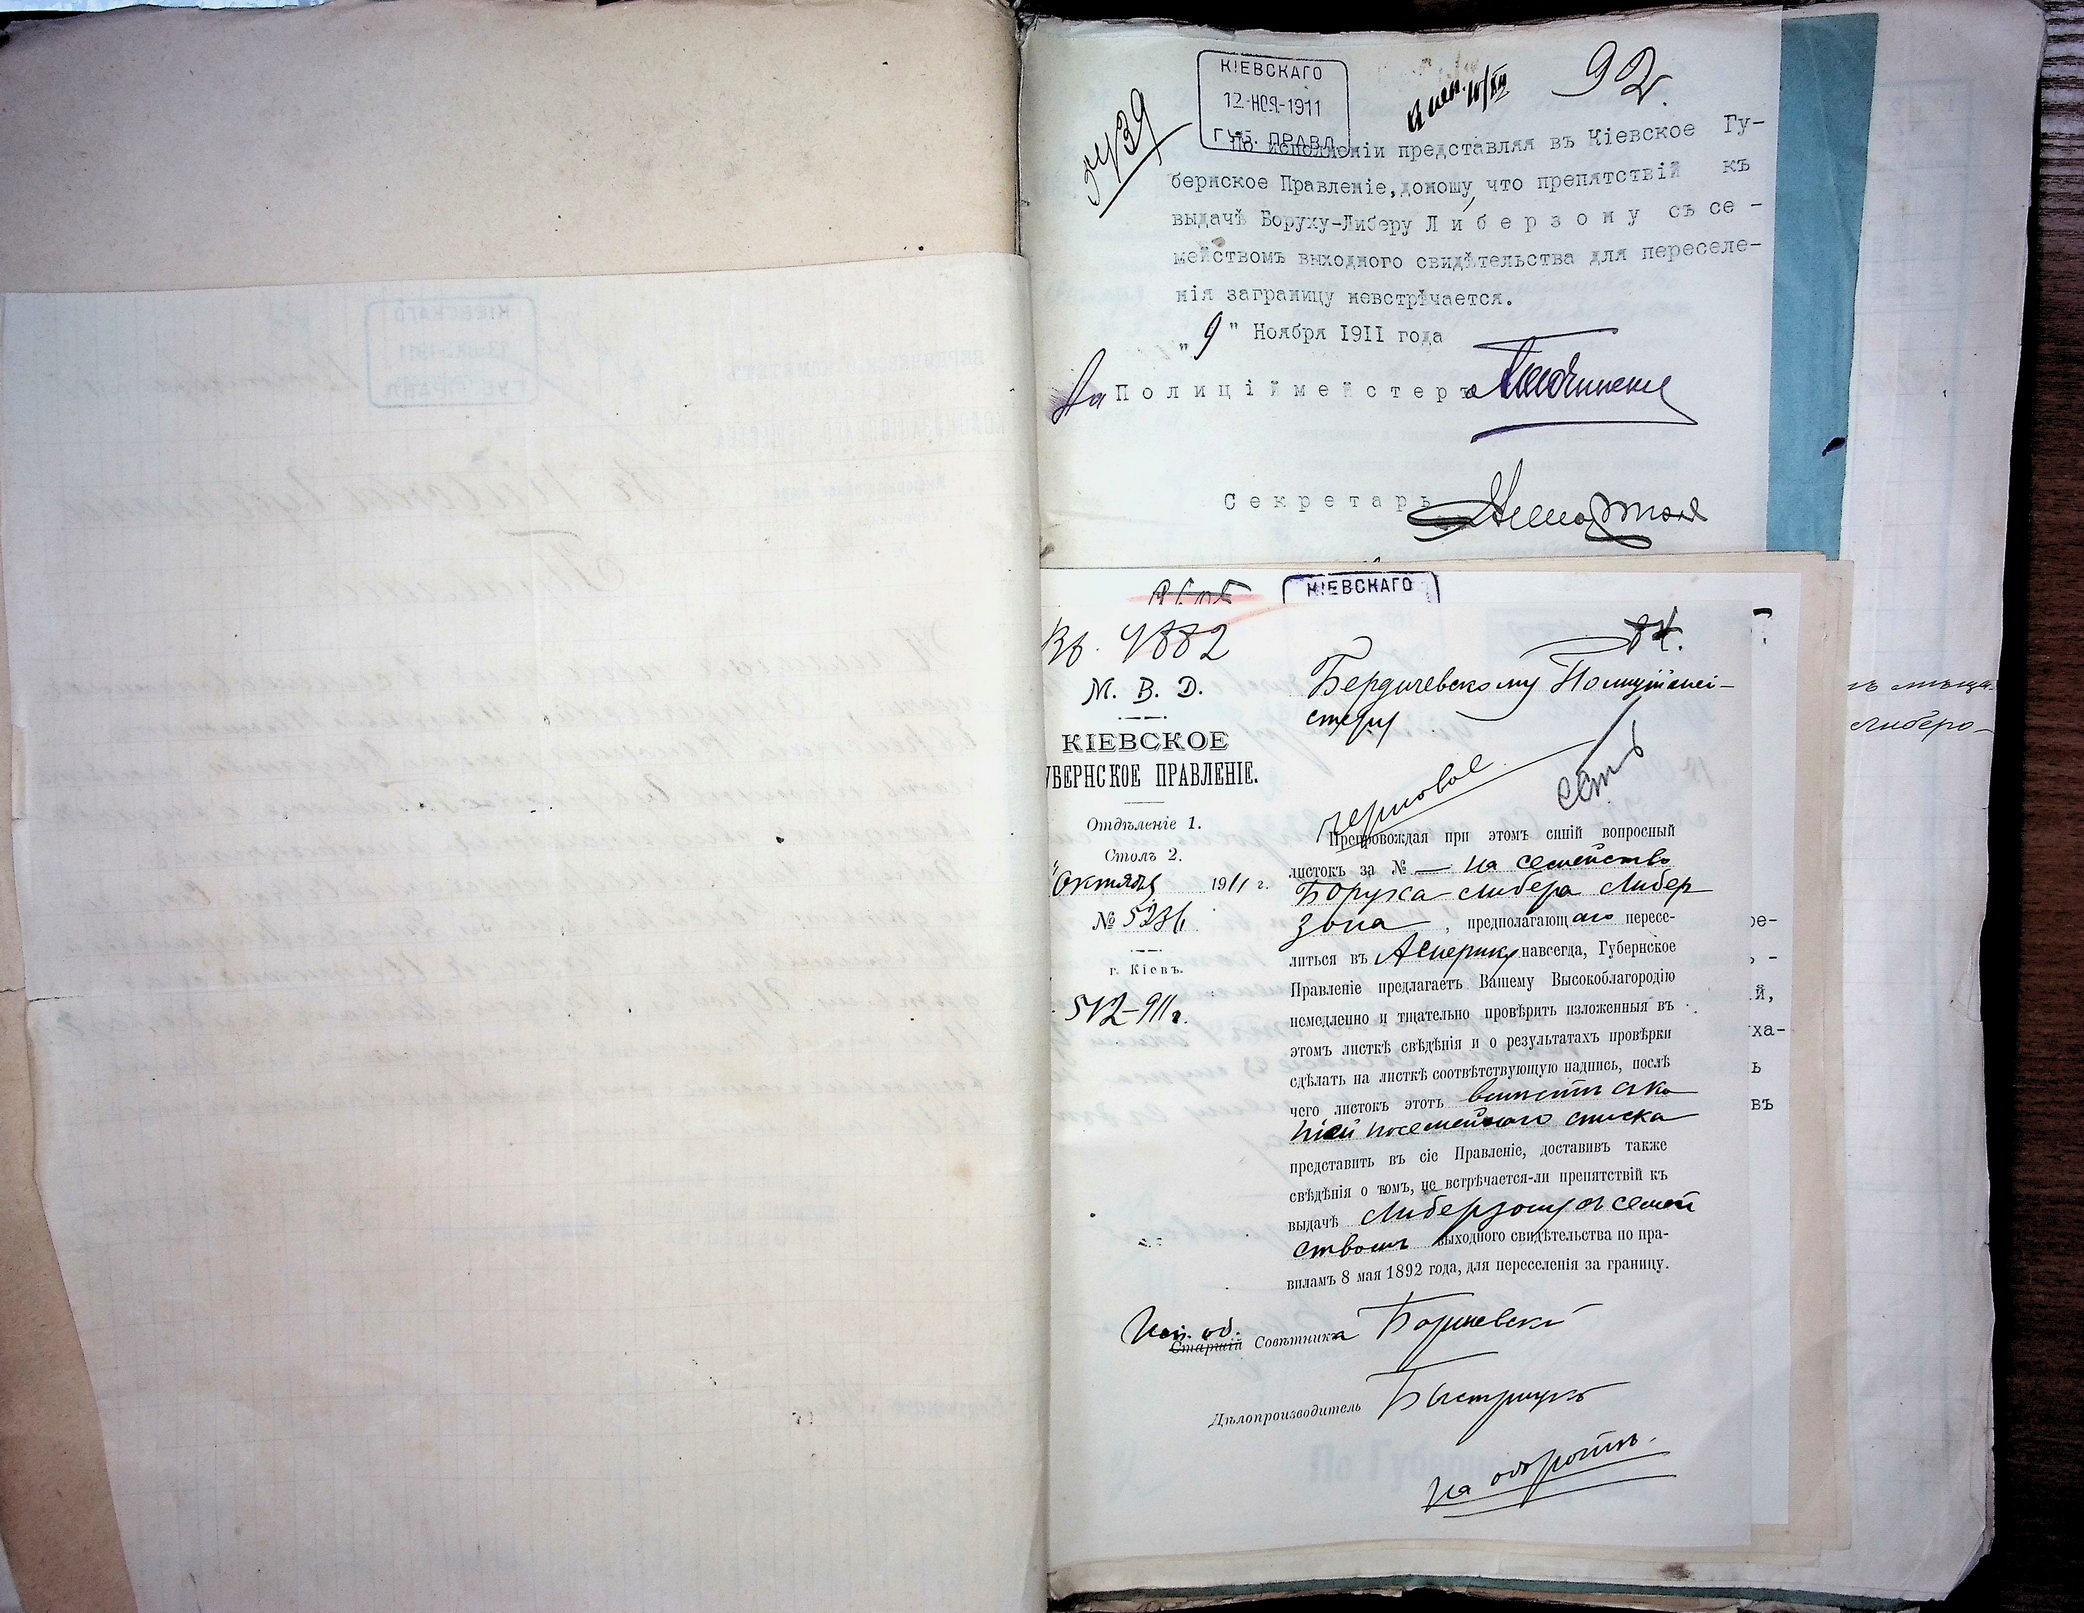 КІЕВСКАГО
12-НОЯ-1911
ГУБ. ПРАВЛ
92
По исполненіи представляя въ Кіевское Гу-
бернское Правленіе, доношу, что препятствій къ
выдачѣ Боруху-Либеру Либерзону съ се -
мействомъ выходного свидѣтельства для переселе-
нія заграницу невстрѣчается.
„ 9 " Ноября 1911 года
За Полиціймейстеръ
Секретарь
КІЕВСКАГО
Вх. 4882
М. В. Д.
КІЕВСКОЕ
УБЕРНСКОЕ ПРАВЛЕНІЕ.
Отдѣленіе 1.
Столъ 2.
Октября 1911 г.
№ 5236
г. Кіевъ.
512-911г.
84.
Бердичевскому Полиціймей-
стеру
черновое
есть
Препровождая при этомъ синій вопросный
листокъ за № — на семейство
Боруха-Либера Либер
зона, предполагающаго пересе-
литься въ Америку навсегда, Губернское
Правленіе предлагаетъ Вашему Высокоблагородію
немедленно и тщательно провѣрить изложенныя въ
этомъ листкѣ свѣдѣнія и о результатахъ провѣрки
сдѣлать на листкѣ соотвѣтствующую надпись, послѣ
чего листокъ этотъ вмѣстѣ съ ко
піей посемейнаго списка
представить въ сіе Правленіе, доставивъ также
свѣдѣнія о томъ, не встрѣчается-ли препятствій къ
выдачѣ Либерзону съ семей
ствомъ выходного свидѣтельства по пра-
виламъ 8 мая 1892 года, для переселенія за границу.
Исп. об.
Старшій Совѣтника
Дѣлопроизводитель Быстрицкій
на оборотѣ.
ре-
й,
ха-
ь
въ
ъ мѣща-
Либеро-